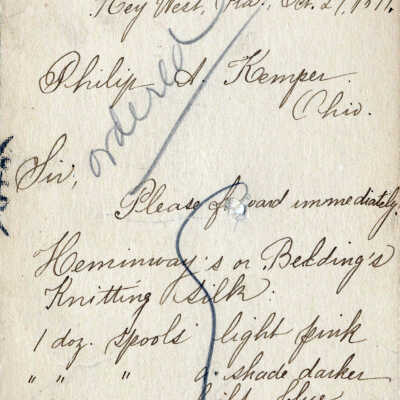 Key West, Fla., Oct. 21, 1891.
Philip A. Kemper
Ohio.
ordered
Sir,
Please forward immediately.
Heminway's or Belding's
Knitting Silk:
1 doz. spools light pink
" " " a shade darker
light blue